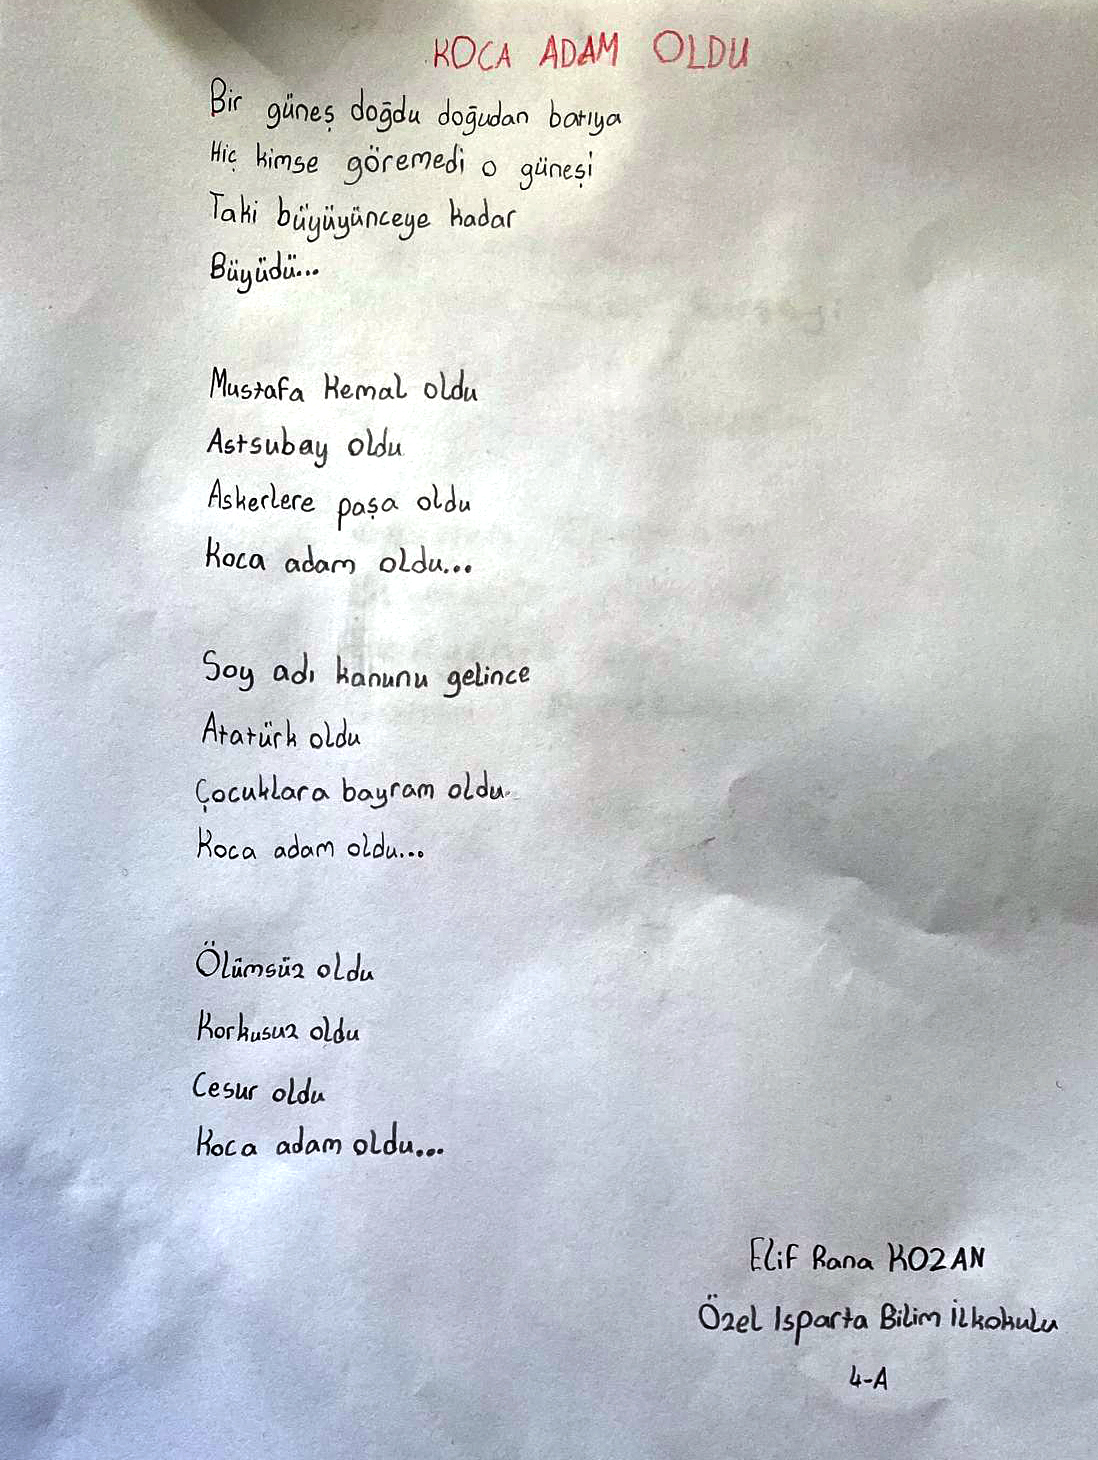 KOCA ADAM OLDU
Bir güneş doğdu doğudan batıya
Hiç kimse göremedi o güneşi
Taki büyüyünceye kadar
Büyüdü...
Mustafa Kemal oldu
Astsubay oldu
Askerlere paşa oldu
Koca adam oldu...
Soy adı kanunu gelince
Atatürk oldu
Çocuklara bayram oldu
Koca adam oldu...
Ölümsüz oldu
Korkusuz oldu
Cesur oldu
Koca adam oldu...
Elif Rana KOZAN
Özel Isparta Bilim İlkokulu
4-A